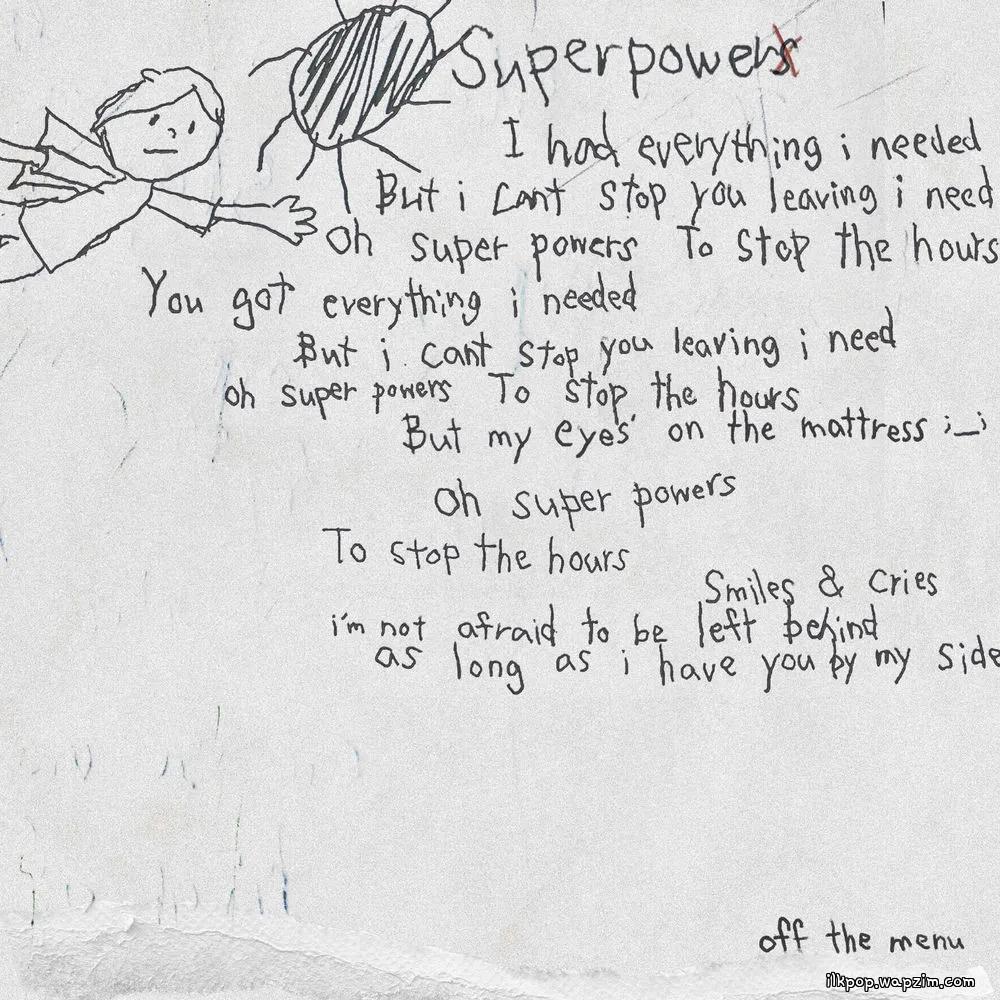 Superpowers
I had everything i needed
But i cant stop you leaving i need
oh super powers To stop the hours
You got everything i needed
But i cant stop you leaving i need
oh super powers To stop the hours
But my eyes on the mattress ;_;
oh super powers
To stop the hours
Smiles & cries
i'm not afraid to be left behind
as long as i have you by my side
off the menu
ilkpop.wapzim.com